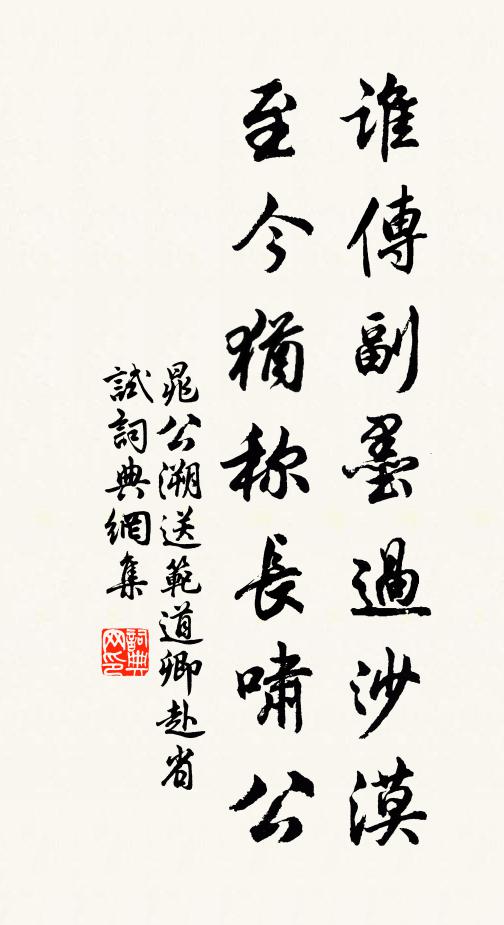 誰傳副墨過沙漠
至今猶称長嘯公
晁公溯送範道卿赴省
試詞典網集
詞典網印